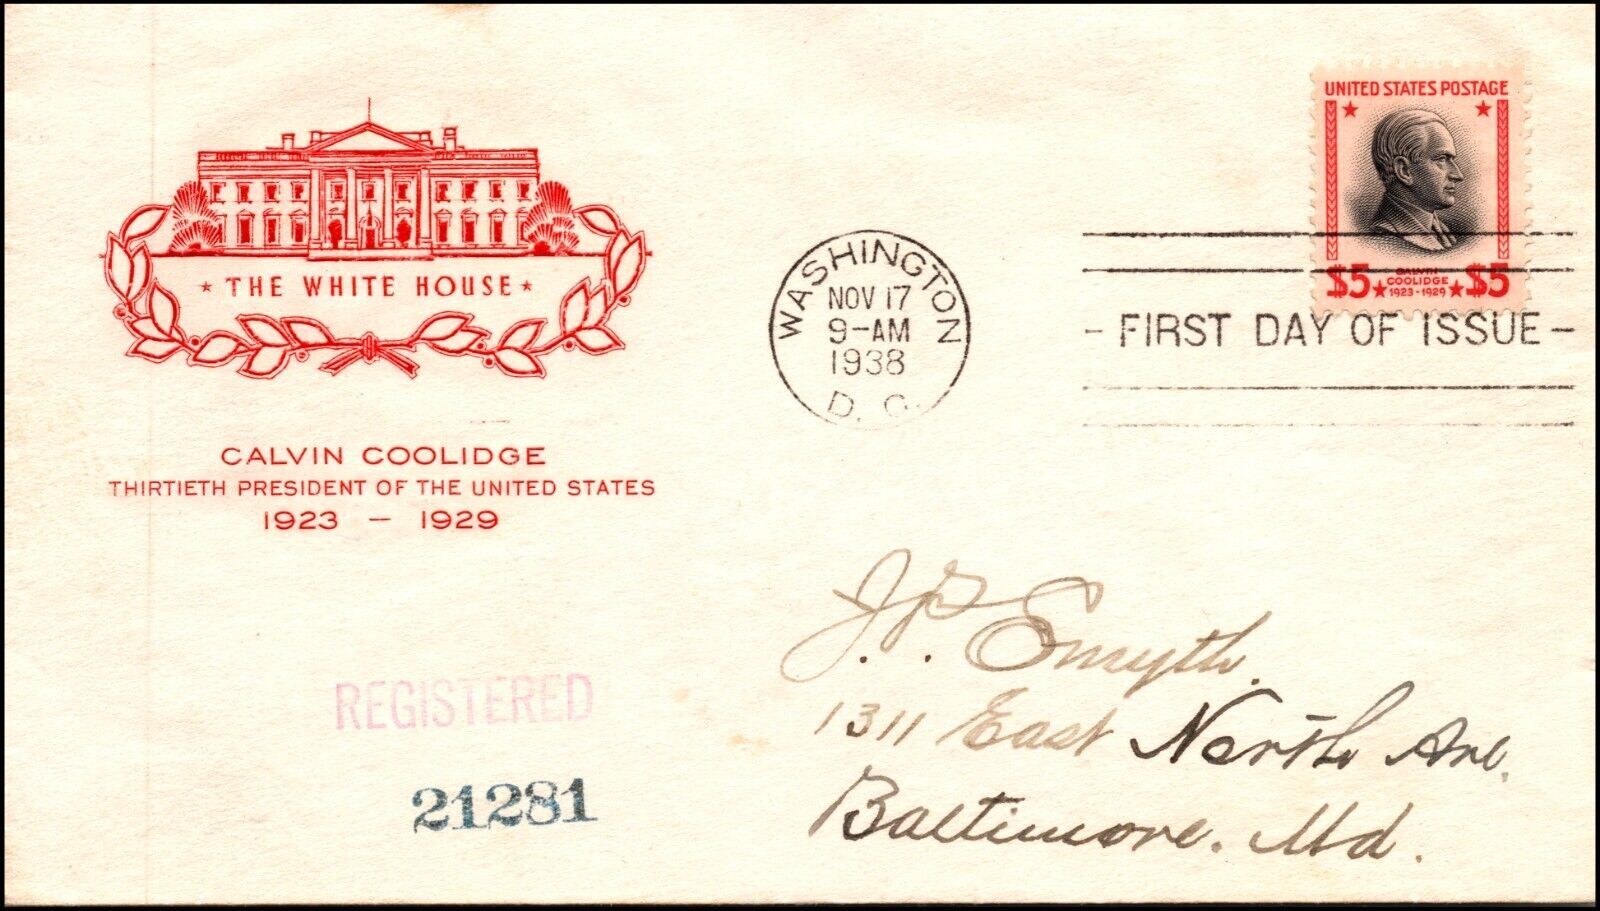 ★ THE WHITE HOUSE ★
CALVIN COOLIDGE
THIRTIETH PRESIDENT OF THE UNITED STATES
1923 - 1929
REGISTERED
21281
WASHINGTON
NOV 17
9-AM
1938
D. C.
UNITED STATES POSTAGE
$5 ★ CALVIN COOLIDGE 1923-1929 ★ $5
- FIRST DAY OF ISSUE -
J. P. Smyth.
1311 East North Ave.
Baltimore. Md.